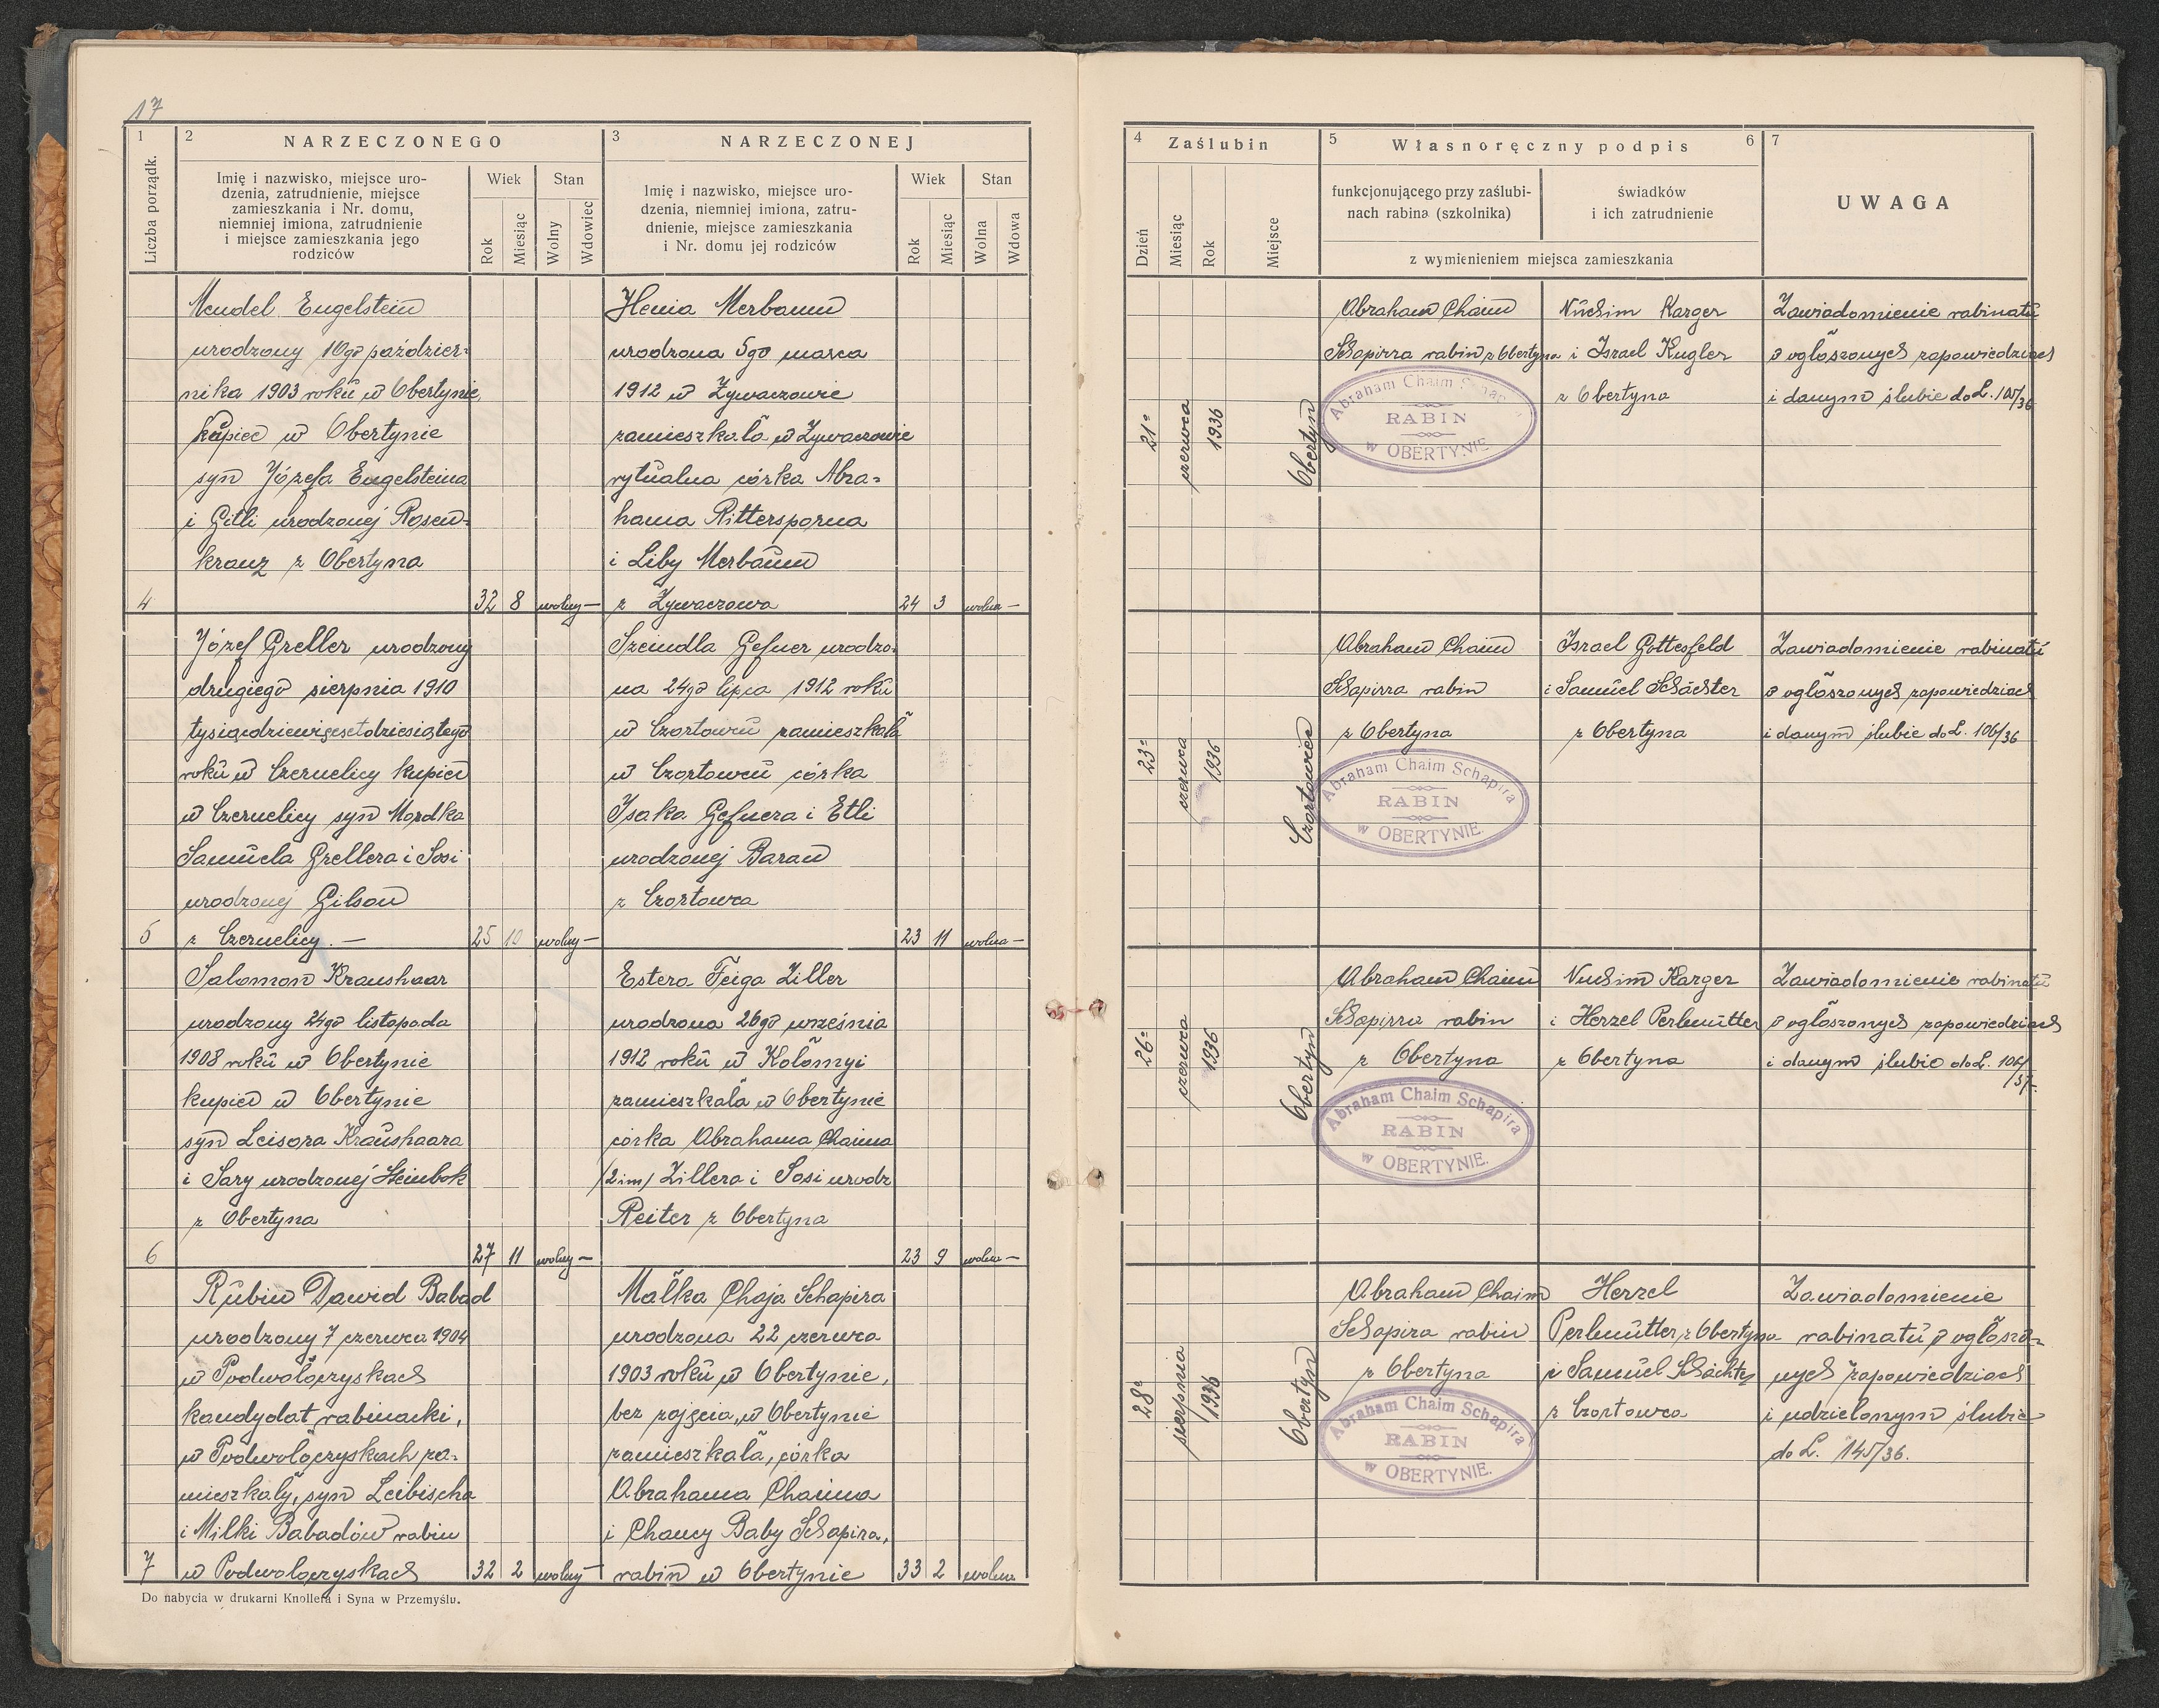 17
1
2 NARZECZONEGO
3 NARZECZONEJ
Liczba porządk.
Imię i nazwisko, miejsce uro-
dzenia, zatrudnienie, miejsce
zamieszkania i Nr. domu,
niemniej imiona, zatrudnienie
i miejsce zamieszkania jego
rodziców
Wiek
Stan
Rok
Miesiąc
Wolny
Wdowiec
Imię i nazwisko, miejsce uro-
dzenia, niemniej imiona, zatru-
dnienie, miejsce zamieszkania
i Nr. domu jej rodziców
Wiek
Stan
Rok
Miesiąc
Wolna
Wdowa
4 Zaślubin
5 Własnoręczny podpis 6
7
UWAGA
Dzień
Miesiąc
Rok
Miejsce
funkcjonującego przy zaślubi-
nach rabina (szkolnika)
świadków
i ich zatrudnienie
z wymienieniem miejsca zamieszkania
Mendel Engelstein
urodzony 10go paździer-
nika 1903 roku w Obertynie,
kupiec w Obertynie
syn Józefa Engelsteina
i Gitli urodzonej Rosen-
kranz z Obertyna
4
32 8 wolny —
Henia Merbaum
urodzona 5go marca
1912 w Żywaczowie
zamieszkała w Żywaczowie
rytualna córka Abra-
hama Rittersporna
i Liby Merbaum
z Żywaczowa
24 3 wolna —
21o
czerwca
1936
Obertyn
Abraham Chaim
Schapirra rabin z Obertyna
Abraham Chaim Schapira
RABIN
w OBERTYNIE.
Nuchim Karger
i Israel Kugler
z Obertyna
Zawiadomienie rabinatu
o ogłoszonych zapowiedziach
i danym ślubie do L. 105/36
Józef Greller urodzony
drugiego sierpnia 1910
tysiącdziewięćsetdziesiątego
roku w Czernelicy kupiec
w Czernelicy syn Mordka
Samuela Grellera i Sosi
urodzonej Gilson
z Czernelicy. —
5
25 10 wolny —
Szeindla Gefner urodzo-
na 24go lipca 1912 roku
w Czortowcu zamieszkała
w Czortowcu córka
Isaka Gefnera i Etli
urodzonej Baran
z Czortowca
23 11 wolna —
23o
czerwca
1936
Czortowiec
Abraham Chaim
Schapirra rabin
z Obertyna
Abraham Chaim Schapira
RABIN
w OBERTYNIE.
Israel Gottesfeld
i Samuel Schächter
z Obertyna
Zawiadomienie rabinatu
o ogłoszonych zapowiedziach
i danym ślubie do L. 106/36
Salomon Kraushaar
urodzony 24go listopada
1908 roku w Obertynie
kupiec w Obertynie
syn Leisora Kraushaara
i Sary urodzonej Steinbok
z Obertyna
6
27 11 wolny —
Estera Feiga Ziller
urodzona 26go września
1912 roku w Kołomyi
zamieszkała w Obertynie
córka Abrahama Chaima
/2im/ Zillera i Sosi urodz
Reiter z Obertyna
23 9 wolna —
26o
czerwca
1936
Obertyn
Abraham Chaim
Schapirra rabin
z Obertyna
Abraham Chaim Schapira
RABIN
w OBERTYNIE.
Nuchim Karger
i Herzel Perlmutter
z Obertyna
Zawiadomienie rabinatu
o ogłoszonych zapowiedziach
i danym ślubie do L.
Rubin Dawid Babad
urodzony 7 czerwca 1904
w Podwołoczyskach
kandydat rabinacki,
w Podwołoczyskach za-
mieszkały, syn Leibischa
i Milki Babadów rabin
w Podwołoczyskach
7
32 2 wolny —
Małka Chaja Schapira
urodzona 22 czerwca
1903 roku w Obertynie,
bez zajęcia, w Obertynie
zamieszkała, córka
Abrahama Chaima
i Chancy Baby Schapira,
rabin w Obertynie
33 2 wolna
28o
sierpnia
1936
Obertyn
Abraham Chaim
Schapira rabin
z Obertyna
Abraham Chaim Schapira
RABIN
w OBERTYNIE.
Herzel
Perlmutter, z Obertyna
i Samuel Schächter
z Czortowca
Zawiadomienie
rabinatu o ogłoszo-
nych zapowiedziach
i udzielonym ślubie
do L. 145/36.
Do nabycia w drukarni Knollera i Syna w Przemyślu.